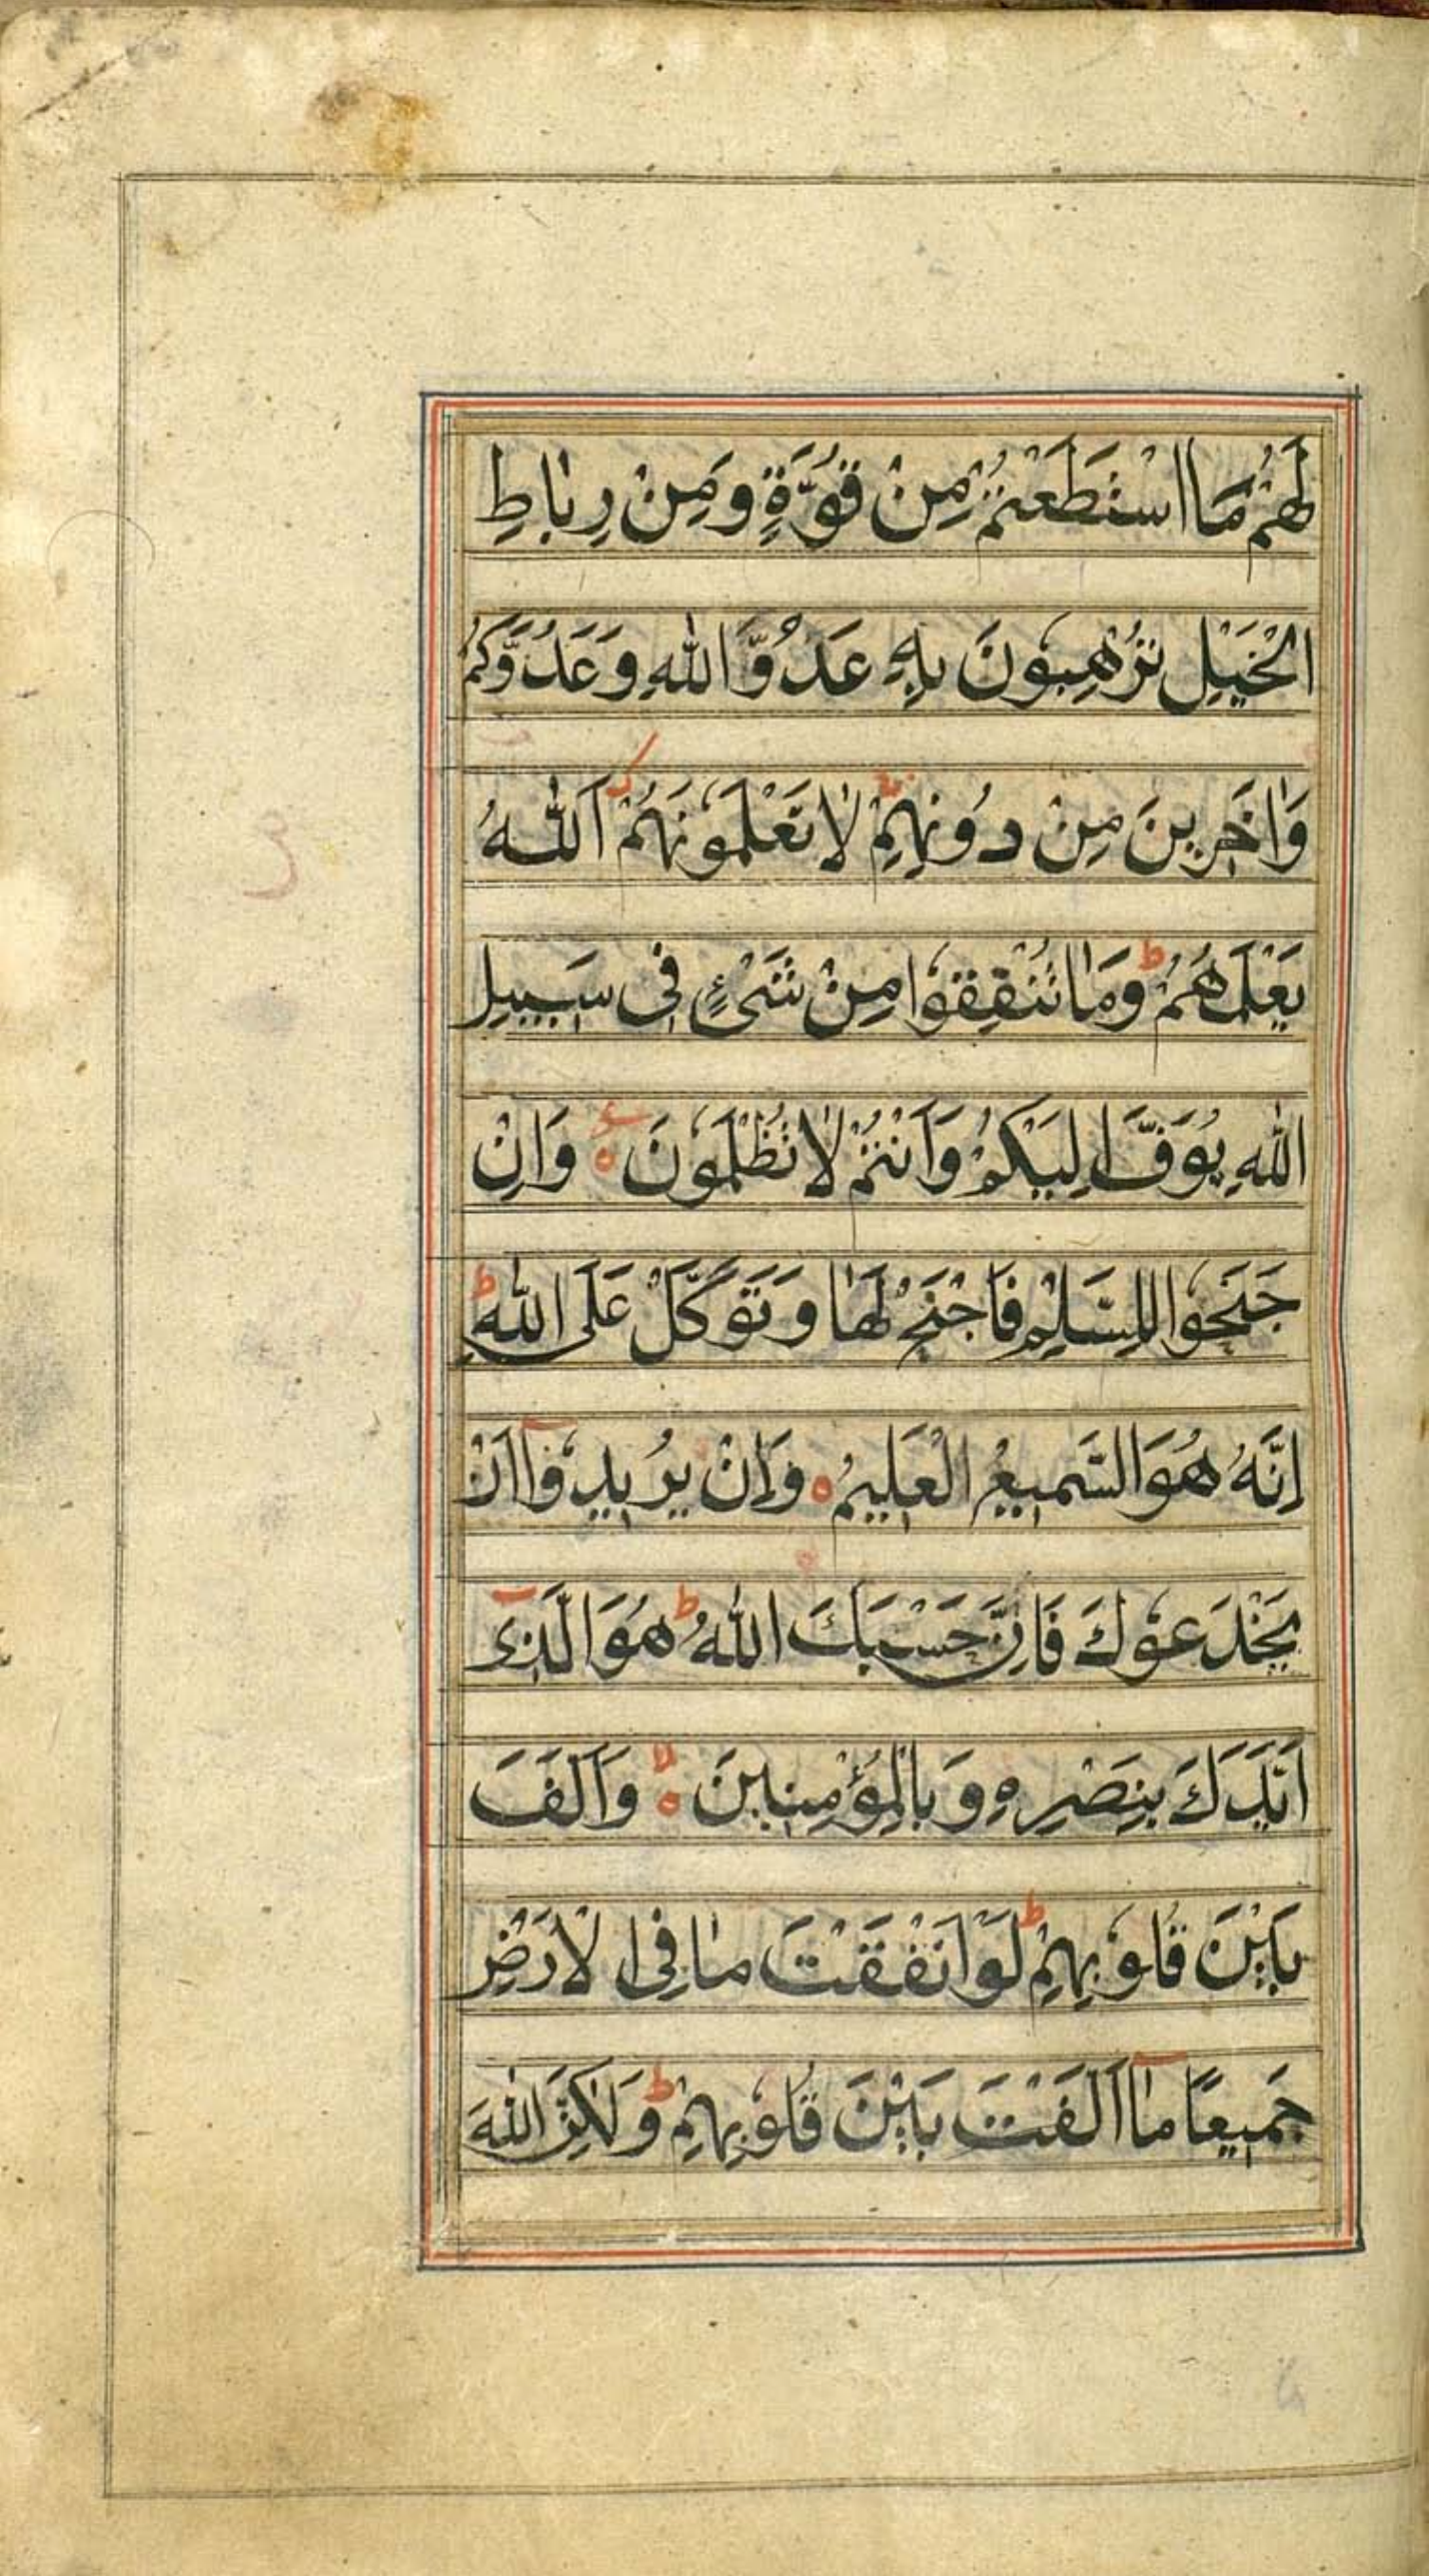 لَهُمْ مَا اسْتَطَعْتُمْ مِنْ قُوَّةٍ وَمِنْ رِبَاطِ
الْخَيْلِ تُرْهِبُونَ بِهٖ عَدُوَّ اللّٰهِ وَعَدُوَّكُمْ
وَاٰخَرِينَ مِنْ دُونِهِمْ لَا تَعْلَمُونَهُمْ اَللّٰهُ
يَعْلَمُهُمْ ط وَمَا تُنْفِقُوا مِنْ شَىْءٍ فِى سَبِيلِ
اللّٰهِ يُوَفَّ اِلَيْكُمْ وَاَنْتُمْ لَا تُظْلَمُونَ ه وَاِنْ
جَنَحُوا لِلسَّلْمِ فَاجْنَحْ لَهَا وَتَوَكَّلْ عَلَى اللّٰهِ ط
اِنَّهُ هُوَ السَّمِيعُ الْعَلِيمُ ه وَاِنْ يُرِيدُوٓا اَنْ
يَخْدَعُوكَ فَاِنَّ حَسْبَكَ اللّٰهُ ط هُوَ الَّذِىٓ
اَيَّدَكَ بِنَصْرِهٖ وَبِالْمُؤْمِنِينَ ه لا وَاَلَّفَ
بَيْنَ قُلُوبِهِمْ ط لَوْ اَنْفَقْتَ مَا فِى الْاَرْضِ
جَمِيعًا مَآ اَلَّفْتَ بَيْنَ قُلُوبِهِمْ ط وَلٰكِنَّ اللّٰهَ